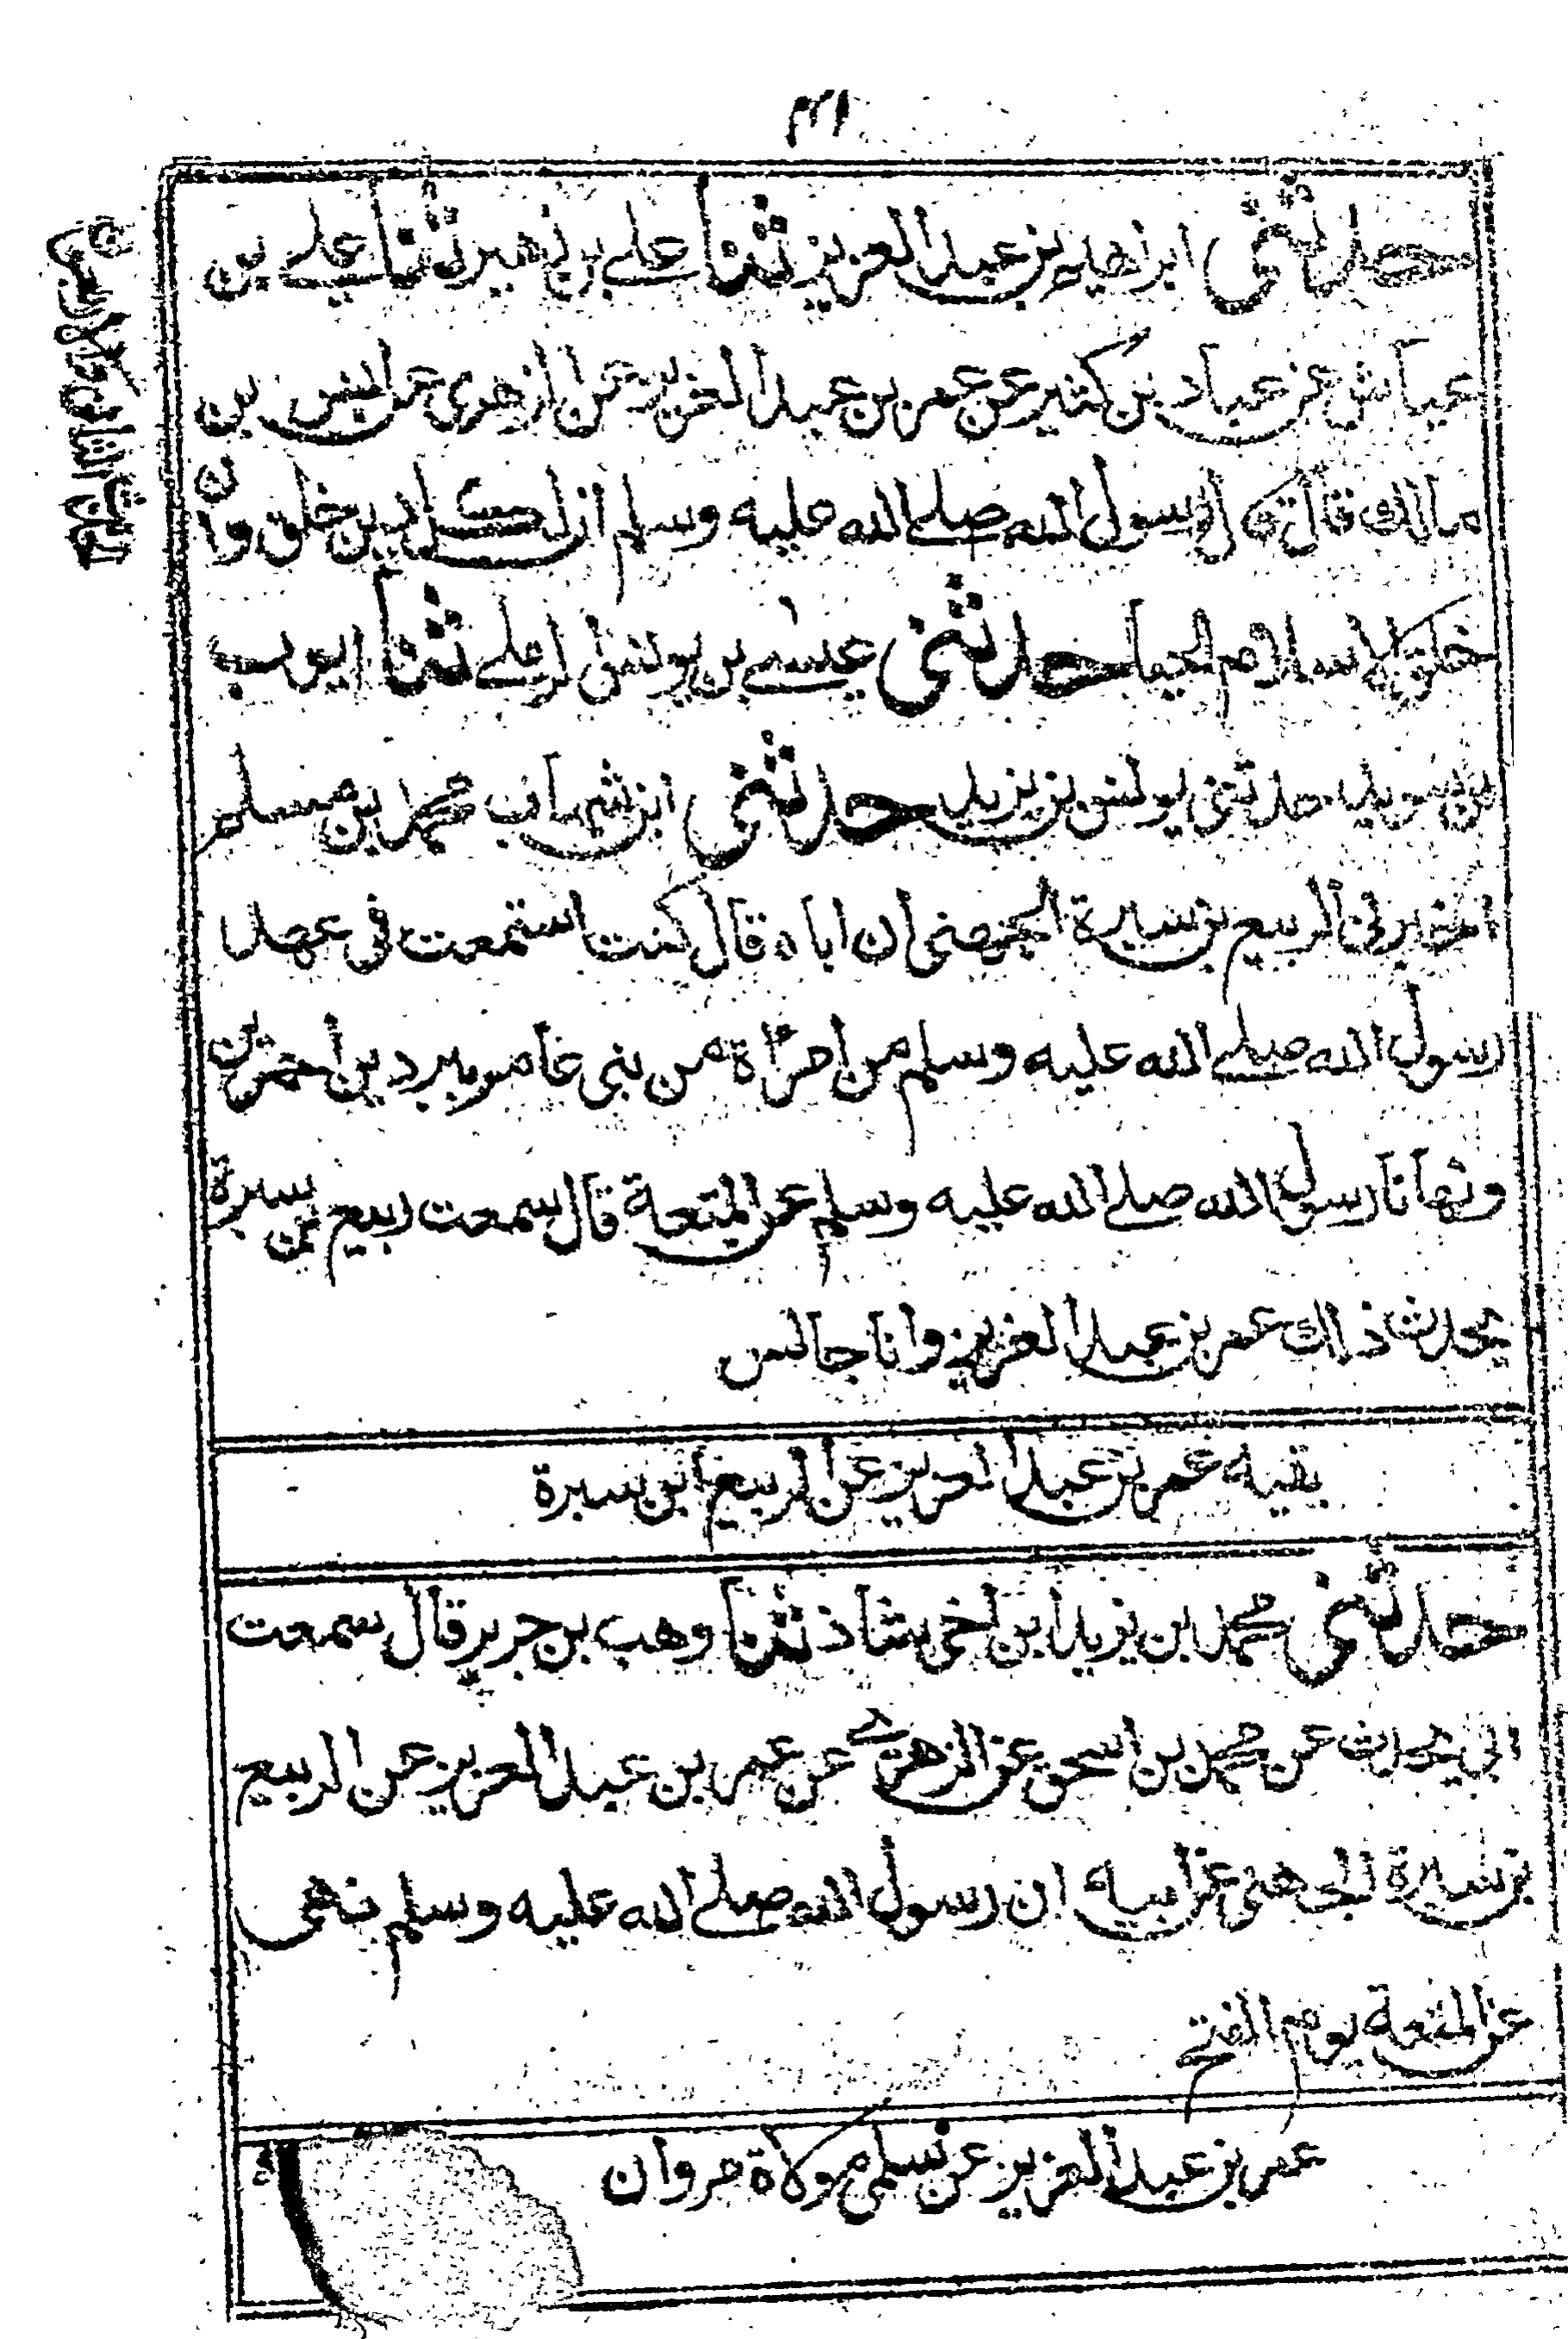 ٣١
حدثني ابراهيم بن عبد العزيز ثنا علي بن زهير ثنا علي بن
عياش عن عباد بن كثير عن عمر بن عبد العزيز عن الزهري عن انس بن
مالك قال قال رسول الله صلى الله عليه وسلم ان لكل دين خلق وان
خلق الاسلام الحيا حدثني عيسى بن يونس الرملي ثنا ايوب
بن سويد حدثني يونس بن يزيد حدثني ابن شهاب محمد بن مسلم
اخبرني الربيع بن سبرة الجهني ان اباه قال كنت استمتعت في عهد
رسول الله صلى الله عليه وسلم من امرأة من بني عامر ببردين أحمرين
ونهانا رسول الله صلى الله عليه وسلم عن المتعة قال سمعت ربيع بن سبرة
يحدث ذلك عمر بن عبد العزيز وانا جالس
بقيه عمر بن عبد العزيز عن الربيع ابن سبرة
حدثني محمد بن يزيد ابن اخي شاذ ثنا وهب بن جرير قال سمعت
ابي يحدث عن محمد بن اسحق عن الزهري عن عمر بن عبد العزيز عن الربيع
بن سبرة الجهني عن ابيه ان رسول الله صلى الله عليه وسلم نهى
عن المتعة يوم الفتح
عمر بن عبد العزيز عن سلمى مولاة مروان